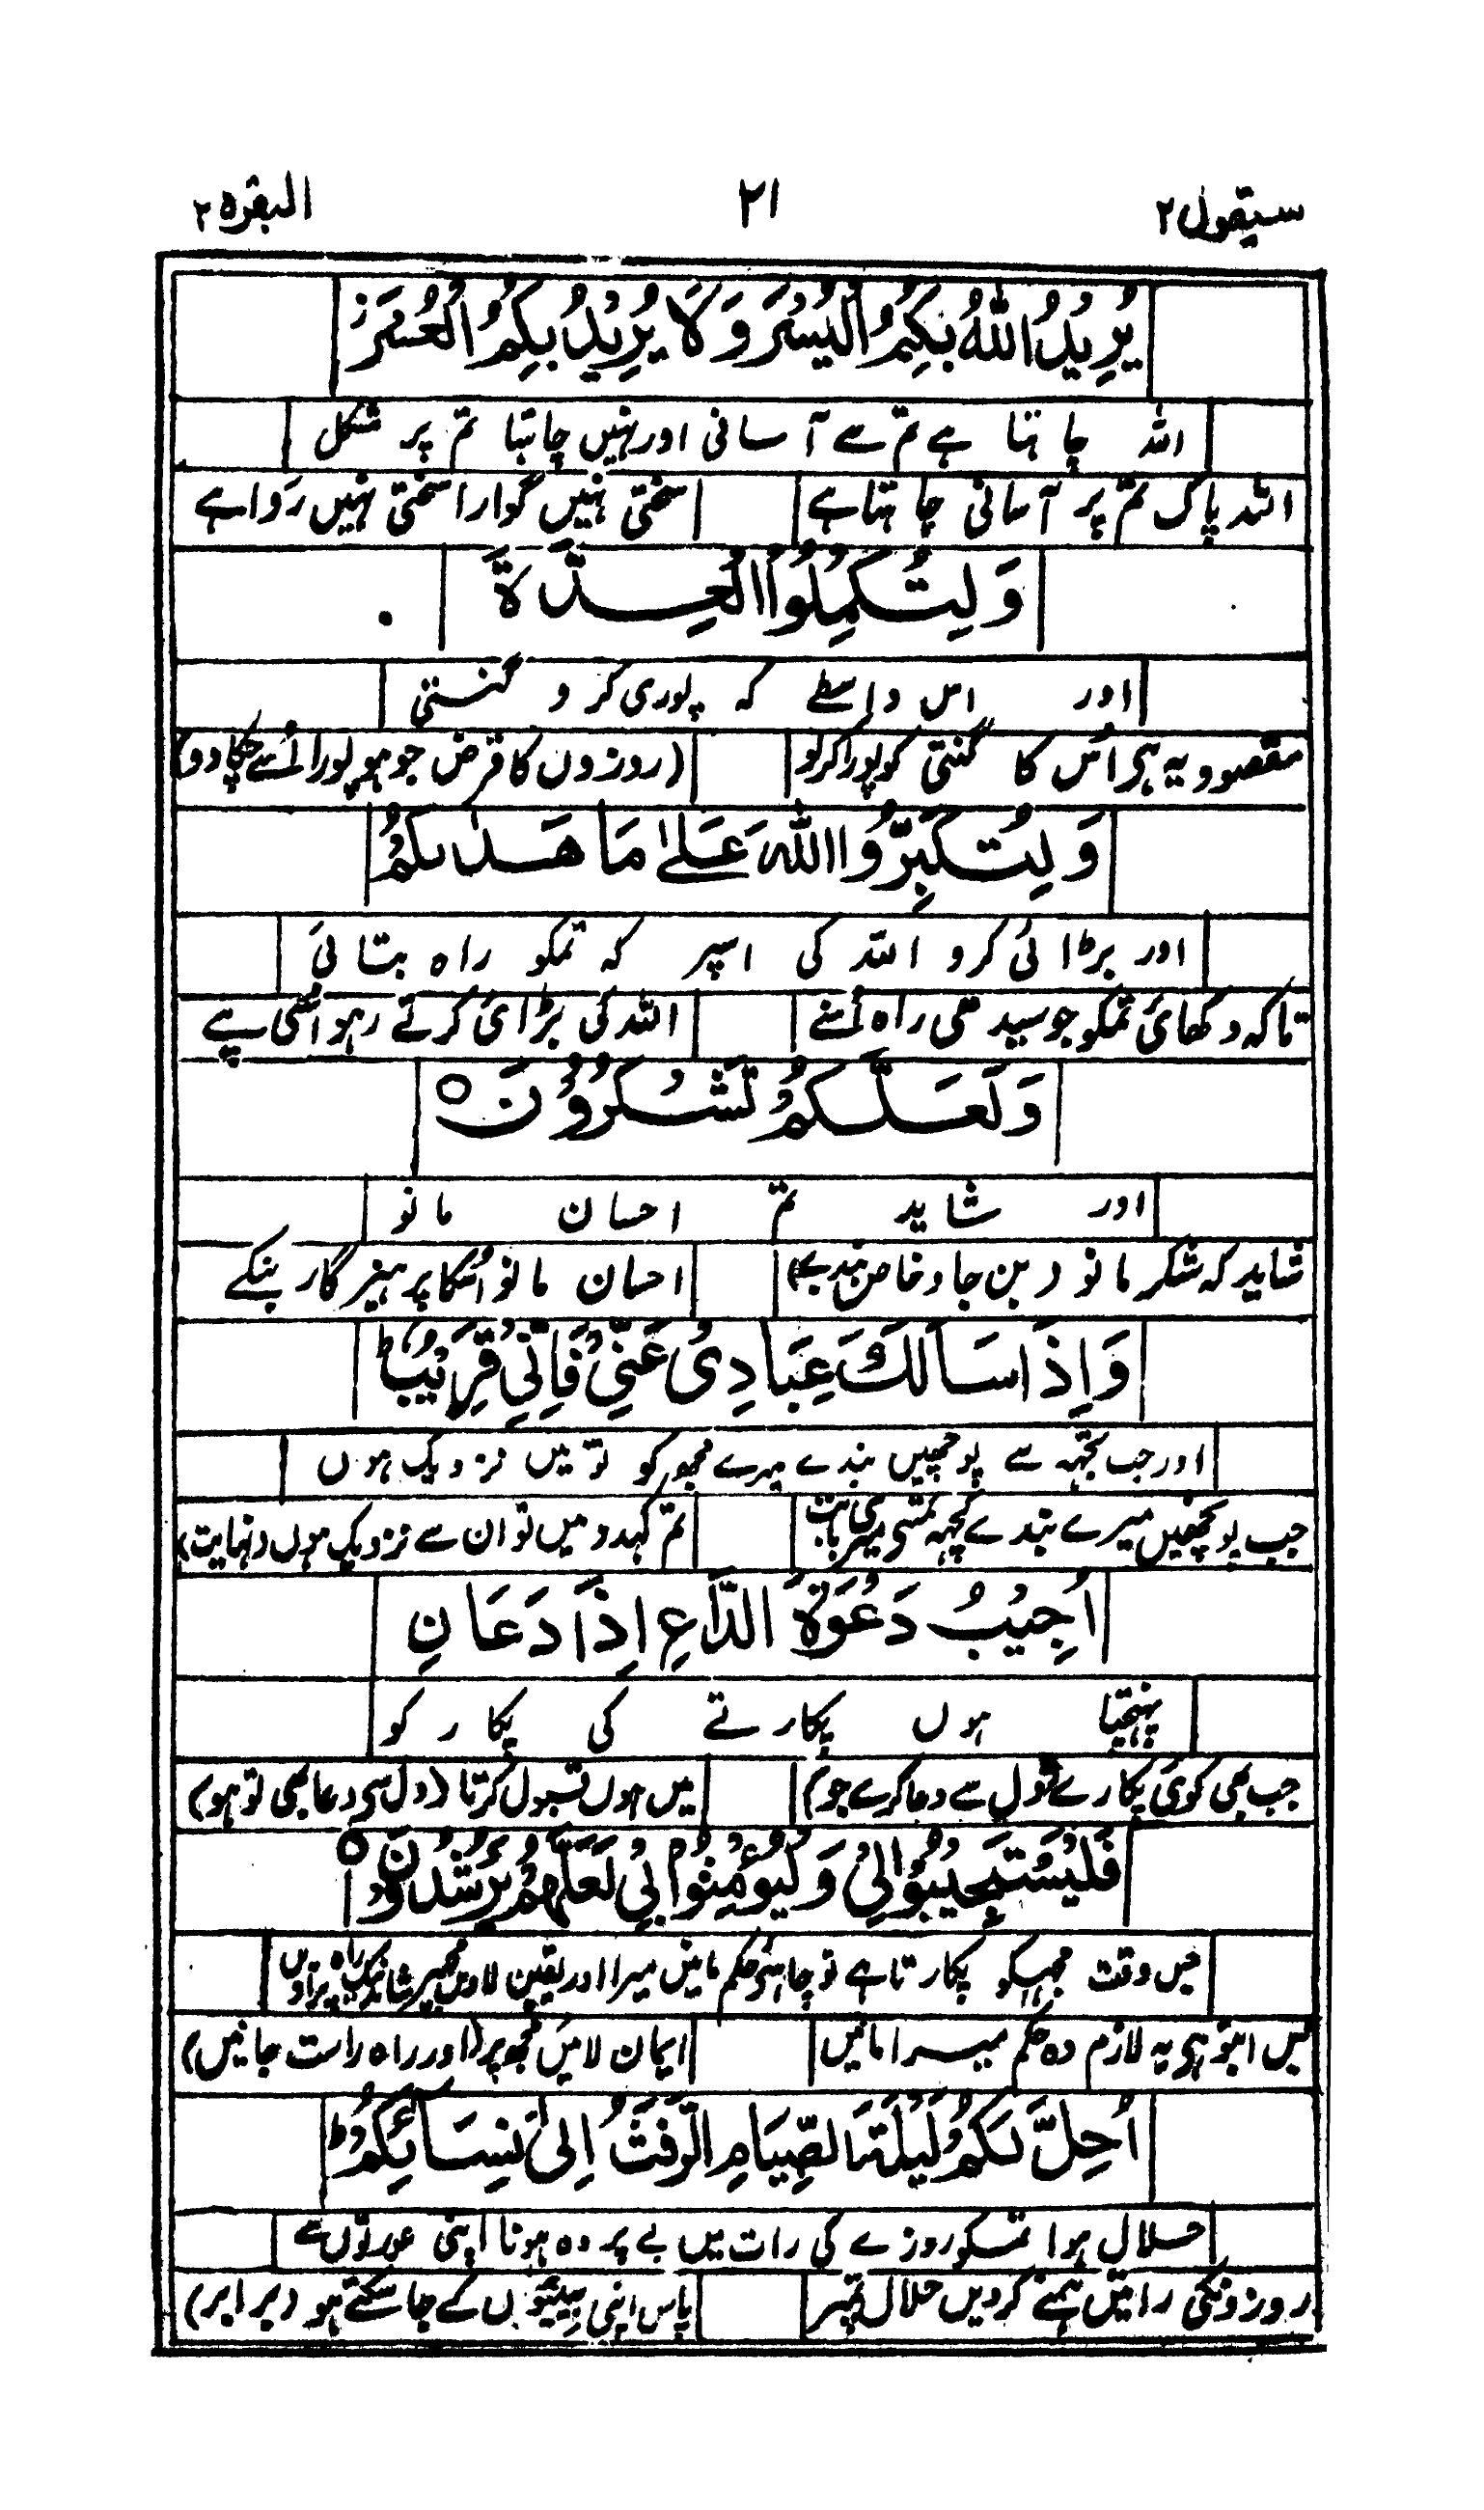 سیقول ۲ ۲۱ البقرہ ۲
یُرِیْدُ اللّٰهُ بِكُمُ الْیُسْرَ وَ لَا یُرِیْدُ بِكُمُ الْعُسْرَ
اللہ چاہتا ہے تم سے آسانی اور نہیں چاہتا تم پر مشکل
اللہ پاک تم پر آسانی چاہتا ہے سختی نہیں گوارا سختی نہیں رَوا ہے
وَ لِتُكْمِلُوا الْعِدَّةَ
اور اس واسطے کہ پوری کرو گنتی
مقصود یہ ہی اُس کا گنتی کو پورا کرلو (روزوں کا قرض جو ہو پورا اُسے چکا دو)
وَ لِتُكَبِّرُوا اللّٰهَ عَلٰى مَا هَدٰىكُمْ
اور بڑائی کرو اللہ کی اسپر کہ تمکو راہ بتائی
تاکہ دکھائی تمکو جو سیدھی راہ اُسنے اللہ کی بڑائی کرتے رہو اسی پے
وَ لَعَلَّكُمْ تَشْكُرُوْنَ ○
اور شاید تم احسان مانو
شاید کہ شکر مانو (بن جاو خاص بندے) احسان مانو اُسکا پرہیزگار بنکے
وَ اِذَا سَاَلَكَ عِبَادِیْ عَنِّیْ فَاِنِّیْ قَرِیْبٌ ط
اور جب تجھہ سے پوچھیں بندے میرے مجھ کو تو میں نزدیک ہوں
جب پوچھیں میرے بندے کچھہ تمسے میری بابت تم کہدو میں تو ان سے نزدیک ہوں (نہایت)
اُجِیْبُ دَعْوَةَ الدَّاعِ اِذَا دَعَانِ
پہنچتا ہوں پکارتے کی پکار کو
جب بھی کوئی پکارے (دل سے دعا کرے جو) میں ہوں قبول کرتا (دل سی دعا بھی تو ہو)
فَلْیَسْتَجِیْبُوْا لِیْ وَ لْیُؤْمِنُوْا بِیْ لَعَلَّهُمْ یَرْشُدُوْنَ ○
جس وقت مجہکو پکارتا ہے تو چاہئے حکم مانیں میرا اور یقین لاویں مجھپر شاید نیک راہ پر آویں
پس انپر ہی یہ لازم وہ حکم میرا مانیں ایمان لائیں مجھ پر (اور راہ راست جانیں)
اُحِلَّ لَكُمْ لَیْلَةَ الصِّیَامِ الرَّفَثُ اِلٰى نِسَآئِكُمْ ط
حلال ہوا تمکو روزے کی رات میں بے پردہ ہونا اپنی عورتوں سے
روزونکی راتیں ہمنے کردیں حلال تمپر پاس اپنی بیبیوں کے جا سکتے ہو (برابر)